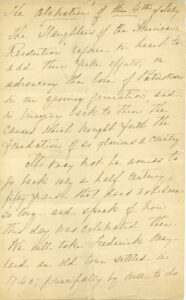 The Celebration of the 4th of July
The Daughters of the American
Revolution rejoice in heart to
add their efforts in
advancing the love of Patriotism
in our growing generation and
in bringing back to them the
causes which brought forth the
foundation of so glorious a country
It may not be amiss to
go back only a half century,
fifty years that does not seem
so long - and speak of how
this day was celebrated then.
We will take Frederick Mary-
land an old town settled in
1745, principally by well to do